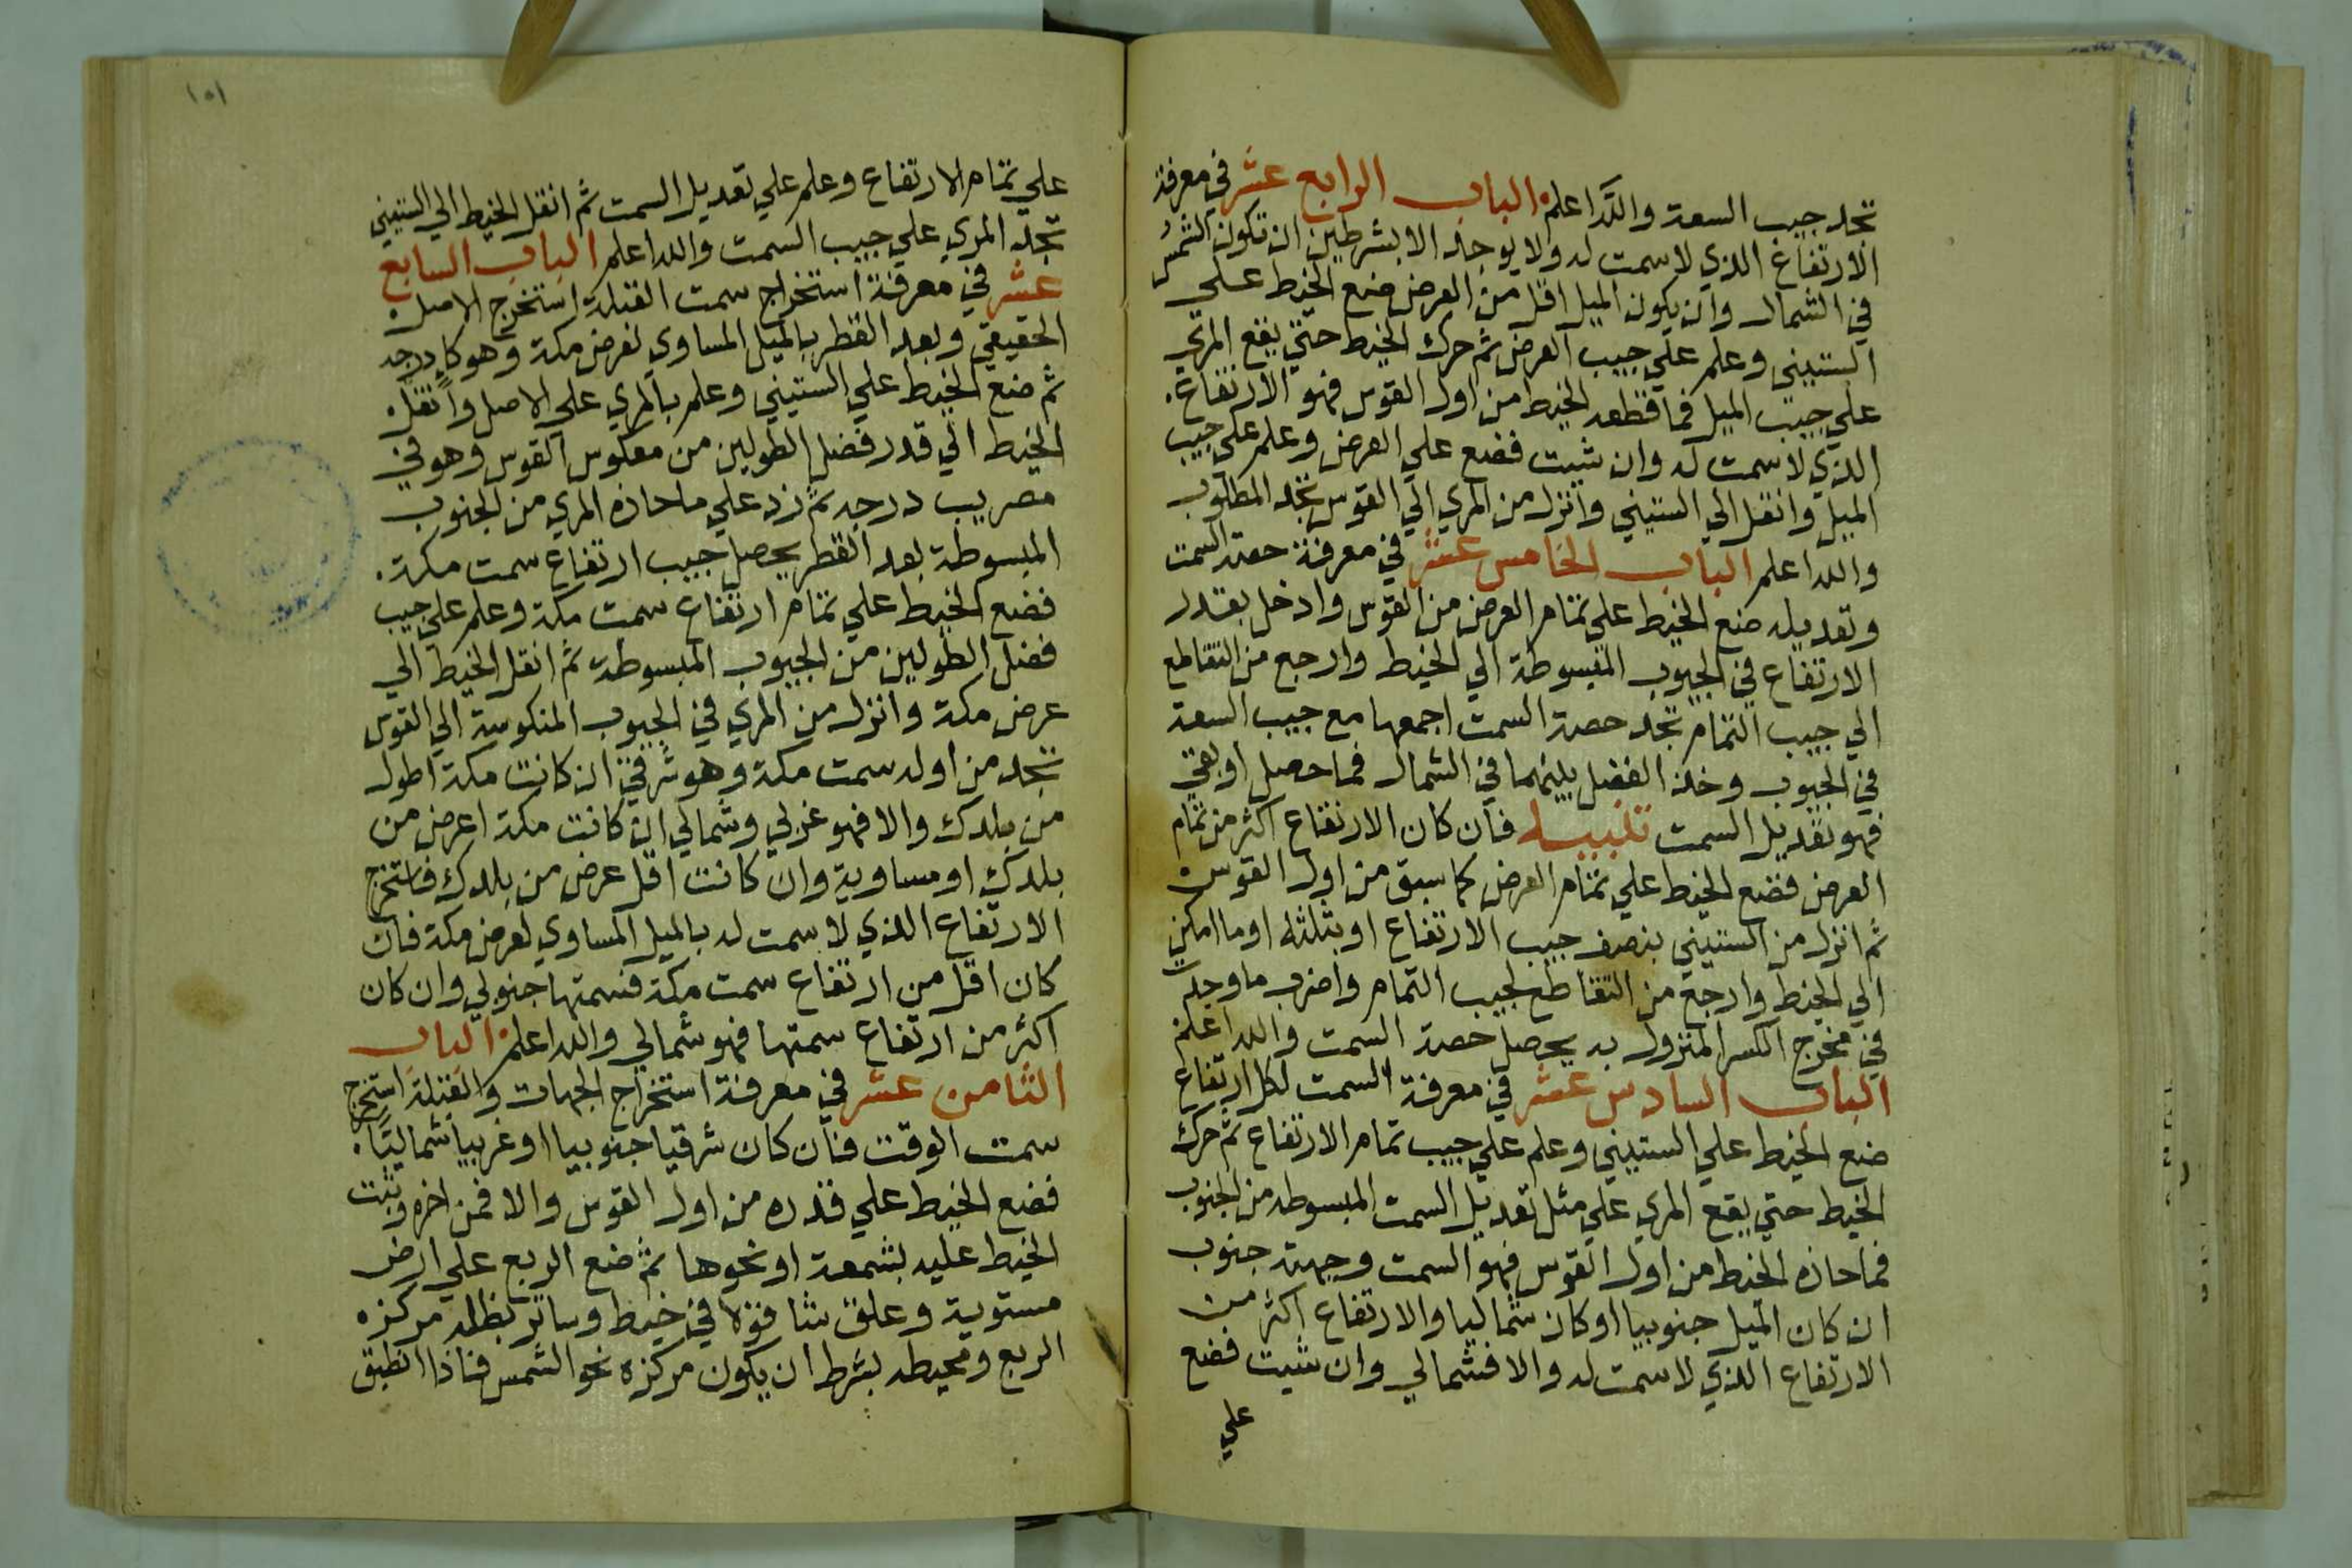 تجد جيب السعة والله اعلم الباب الرابع عشر في معرفة
الارتفاع الذي لا سمت له ولا يوجد الا بشرطين ان تكون الشمس
في الشمال وان يكون الميل اقل من العرض ضع الخيط علي
الستيني وعلم علي جيب العرض ثم حرك الخيط حتي يقع المري
علي جيب الميل فما قطعه الخيط من اول القوس فهو الارتفاع
الذي لا سمت له وان شيت فضع علي العرض وعلم علي جيب
الميل وانقل الي الستيني وانزل من المري الي القوس تجد المطلوب
والله اعلم الباب الخامس عشر في معرفة حصة السمت
وتعديله ضع الخيط علي تمام العرض من القوس وادخل بقدر
الارتفاع في الجيوب المبسوطة الي الخيط وارجع من التقاطع
الي جيب التمام تجد حصة السمت اجمعها مع جيب السعة
في الجنوب وخذ الفضل بينهما في الشمال فما حصل او بقي
فهو تعديل السمت تنبيه فان كان الارتفاع اكثر من تمام
العرض فضع الخيط علي تمام العرض كما سبق من اول القوس
ثم انزل من الستيني بنصف جيب الارتفاع او بثلثه او ما امكن
الي الخيط وارجع من التقاطع لجيب التمام واضرب ما وجدت
في مخرج الكسر المنزول به يحصل حصة السمت والله اعلم
الباب السادس عشر في معرفة السمت لكل ارتفاع
ضع الخيط علي الستيني وعلم علي جيب تمام الارتفاع ثم حرك
الخيط حتي يقع المري علي مثل تعديل السمت المبسوطه من الجيوب
فما حاذه الخيط من اول القوس فهو السمت وجهته جنوب
ان كان الميل جنوبيا او كان شماليا والارتفاع اكثر من
الارتفاع الذي لا سمت له والا فشمالي وان شيت فضع
علي
١٥١
علي تمام الارتفاع وعلم علي تعديل السمت ثم انقل الخيط الي الستيني
تجد المري علي جيب السمت والله اعلم الباب السابع
عشر في معرفة استخراج سمت القبلة استخرج الاصل
الحقيقي وبعد القطر بالميل المساوي لعرض مكة وهو كا درجه
ثم ضع الخيط علي الستيني وعلم بالمري علي الاصل وانقل
الخيط الي قدر فضل الطولين من معكوس القوس وهو في
مصر يب درجه ثم زد علي ما حاذه المري من الجيوب
المبسوطة بعد القطر يحصل جيب ارتفاع سمت مكة
فضع الخيط علي تمام ارتفاع سمت مكة وعلم علي جيب
فضل الطولين من الجيوب المبسوطة ثم انقل الخيط الي
عرض مكة وانزل من المري في الجيوب المنكوسة الي القوس
تجد من اوله سمت مكة وهو شرقي ان كانت مكة اطول
من بلدك والا فهو غربي وشمالي ان كانت مكة اعرض من
بلدك او مساوية وان كانت اقل عرض من بلدك فاستخرج
الارتفاع الذي لا سمت له بالميل المساوي لعرض مكة فان
كان اقل من ارتفاع سمت مكة فسمتها جنوبي وان كان
اكثر من ارتفاع سمتها فهو شمالي والله اعلم الباب
الثامن عشر في معرفة استخراج الجهات والقبلة استخرج
سمت الوقت فان كان شرقيا جنوبيا او غربيا شماليا
فضع الخيط علي قدره من اول القوس والا فمن اخره وثبت
الخيط عليه بشمعة او نحوها ثم ضع الربع علي ارض
مستوية وعلق شاقولا في خيط وساتر بظله مركزه
الربع ومحيطه بشرط ان يكون مركزه نحو الشمس فاذا انطبق